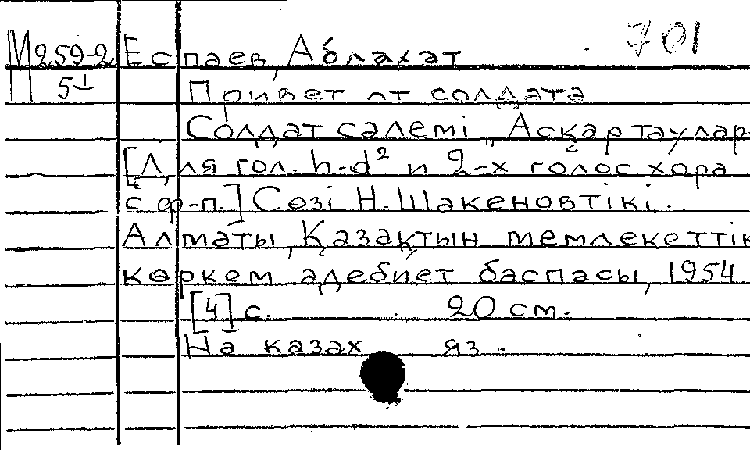 М259-2 Еспаев, Аблахат 701
П 51 Привет от солдата
Солдат сәлемі, Асқар таулар
[Для гол. h-d² и 2-х голос хора
с ф-п.] Сөзі Н. Шакеновтікі.
Алматы, Қазақтын мемлекеттік
көркем әдебиет баспасы, 1954
[4] с. 20 см.
На казах яз.